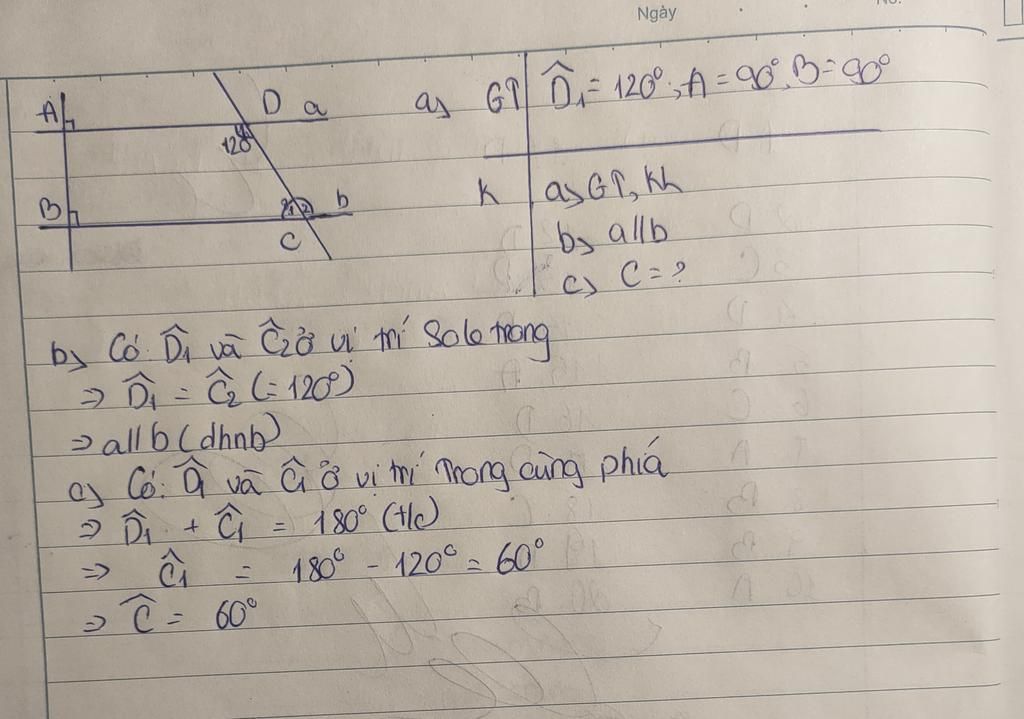 Ngày
A D a
120°
B 1 2 b
C
a) GT D̂₁ = 120°; A = 90°, B = 90°
K a) GT, Kh
b) a//b
c) C = ?
b) Có: D̂₁ và Ĉ₂ ở vị trí Sole trong
⇒ D̂₁ = Ĉ₂ (= 120°)
⇒ a//b (dhnb)
c) Có: D̂₁ và Ĉ₁ ở vị trí Trong cùng phiá
⇒ D̂₁ + Ĉ₁ = 180° (t/c)
⇒ Ĉ₁ = 180° - 120° = 60°
⇒ Ĉ = 60°